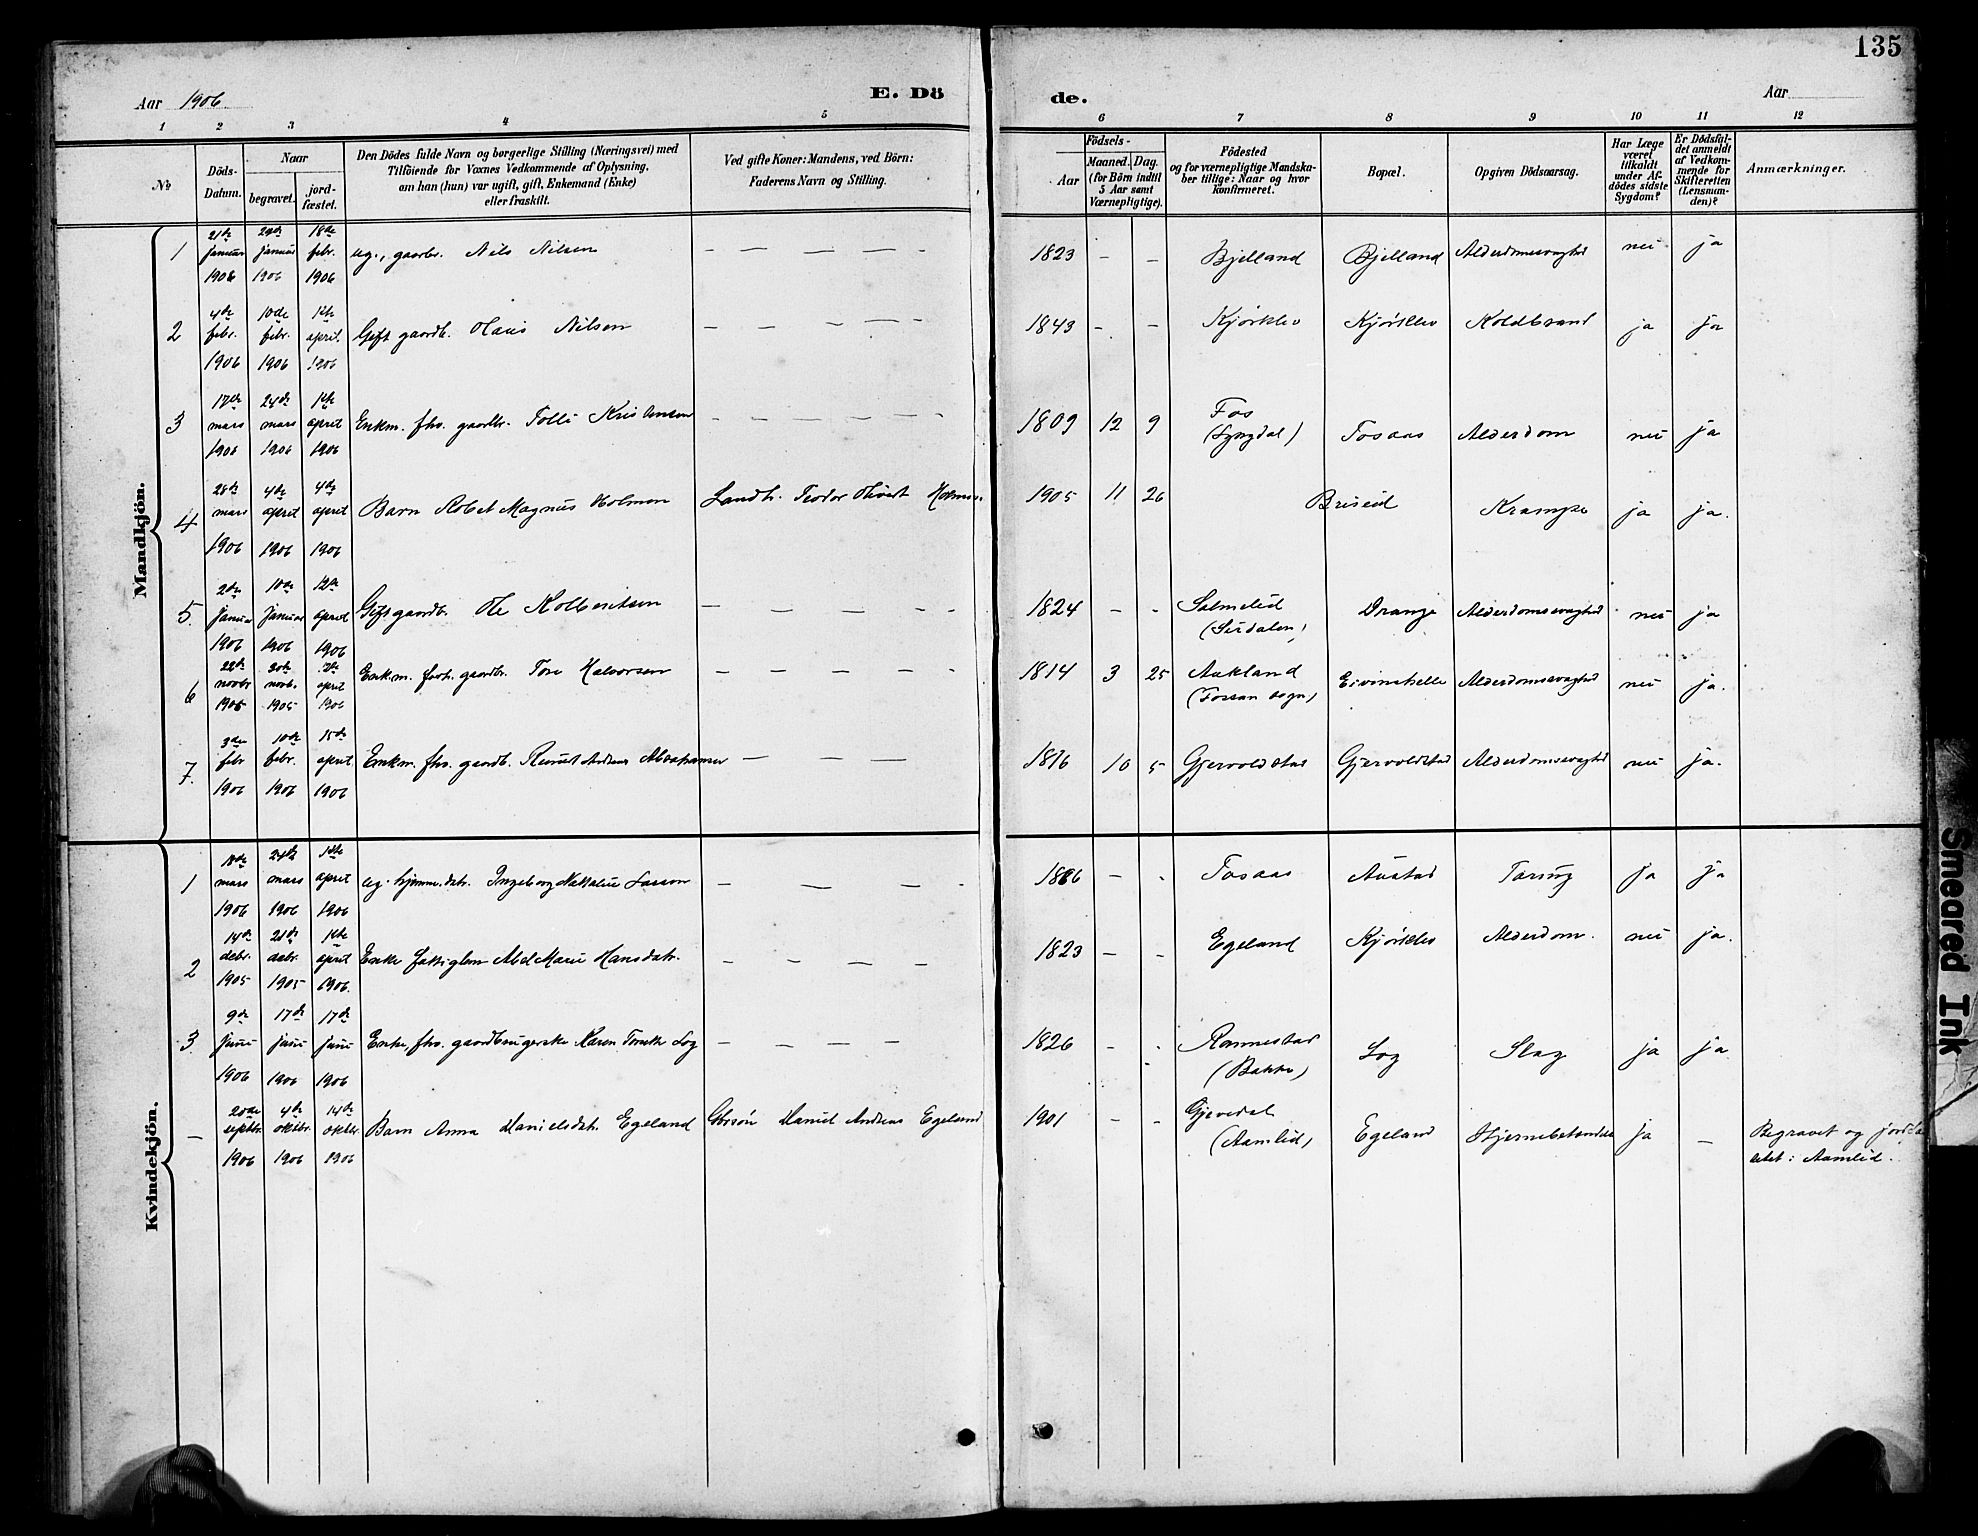 135
Aar 1906.
E. Dö
de.
Aar
1 2 3 4 5
6 7 8 9 10 11 12
№
Döds-
Datum.
Naar
begravet.
jord-
fæstet.
Den Dödes fulde Navn og borgerlige Stilling (Næringsvei) med
Tilföiende for Voxnes Vedkommende af Oplysning,
om han (hun) var ugift, gift, Enkemand (Enke)
eller fraskilt.
Ved gifte Koner: Mandens, ved Börn:
Faderens Navn og Stilling.
Födsels-
Aar
Maaned. Dag.
(for Börn indtil
5 Aar samt
Værnepligtige).
Födested
og for værnepligtige Mandska-
ber tillige: Naar og hvor
Konfirmeret.
Bopæl.
Opgiven Dödsaarsag.
Har Læge
været
tilkaldt
under Af-
dödes sidste
Sygdom?
Er Dödsfal-
det anmeldt
af Vedkom-
mende for
Skifteretten
(Lensman-
den)?
Anmærkninger.
Mandkjön.
1 januar januar 18de febr. 1906 1906 1906 ug., gaardbr. Nils Nilsen — — — — — 1823 — — Bjelland Bjelland Alderdomssvaghed nei ja
2 4de febr. 1906 10de febr. 1906 april 1906 Gift gaardb. Nilsen — — — — — 1843 — — Kjörklev Kjörklev Koldbrand ja ja
3 17de mars 1906 24de mars 1906 april 1906 Enkm. fhv. gaardbr. — — — — — 1809 12 9 Fos
(Lyngdal) Fosaas Alderdom nei ja
4 28de mars 1906 4de april 1906 4de april 1906 Barn Magnus Holmen Teodor Olivert 1905 11 26 Briseid Krampe ja ja.
5. 2den januar 1906 10de januar 1906 april 1906 Gift gaardb. Ole — — — — — 1824 — - Salmelid
(Sirdalen) Drange Alderdomssvaghed nei ja
6 22de novbr 1905 novb. 1905 april 1906 Enkm. gaardbr. Tore Halvorsen — — — — - 1814 3 25 Aukland
(Fossan sogn) Eivinshelle Alderdomssvaghed nei ja.
7. 3die febr 1906 10de febr. 1906 15de april 1906 Enkm. fhv. gaardb. Abrahamsen — — — — 1816 10 5 Gjervoldstad Gjervoldstad Alderdomssvaghed nei ja.
Kvindekjön.
1 18de mars 1906 24de mars 1906 april 1906 ug. hjemm. datr. Ingeborg Larsen — — — — 1886 — - Fosaas Austad Tæring ja ja
2 14de debr. 1905 21de debr. 1905 april 1906. Enke Marie Hansdatr. — — — — 1823 — - Egeland Kjörklev Alderdom. nei ja.
3. 9de juni 1906 17de juni 1906 17de juni 1906 Enke, fhv. gaardbrugerske Karen Log — — — — 1826 - - Rannestad
(Bakke) Log Slag ja ja
— septbr. 1906 4de oktbr. 1906 14de oktbr. 1906 Barn Anna Danielsdatr. Egeland Daniel Andreas Egeland 1901 — - Gjevedal
(Aamlid) Egeland Hjernebetændelse ja —
Begravet og
Aamlid.
Smeared Ink